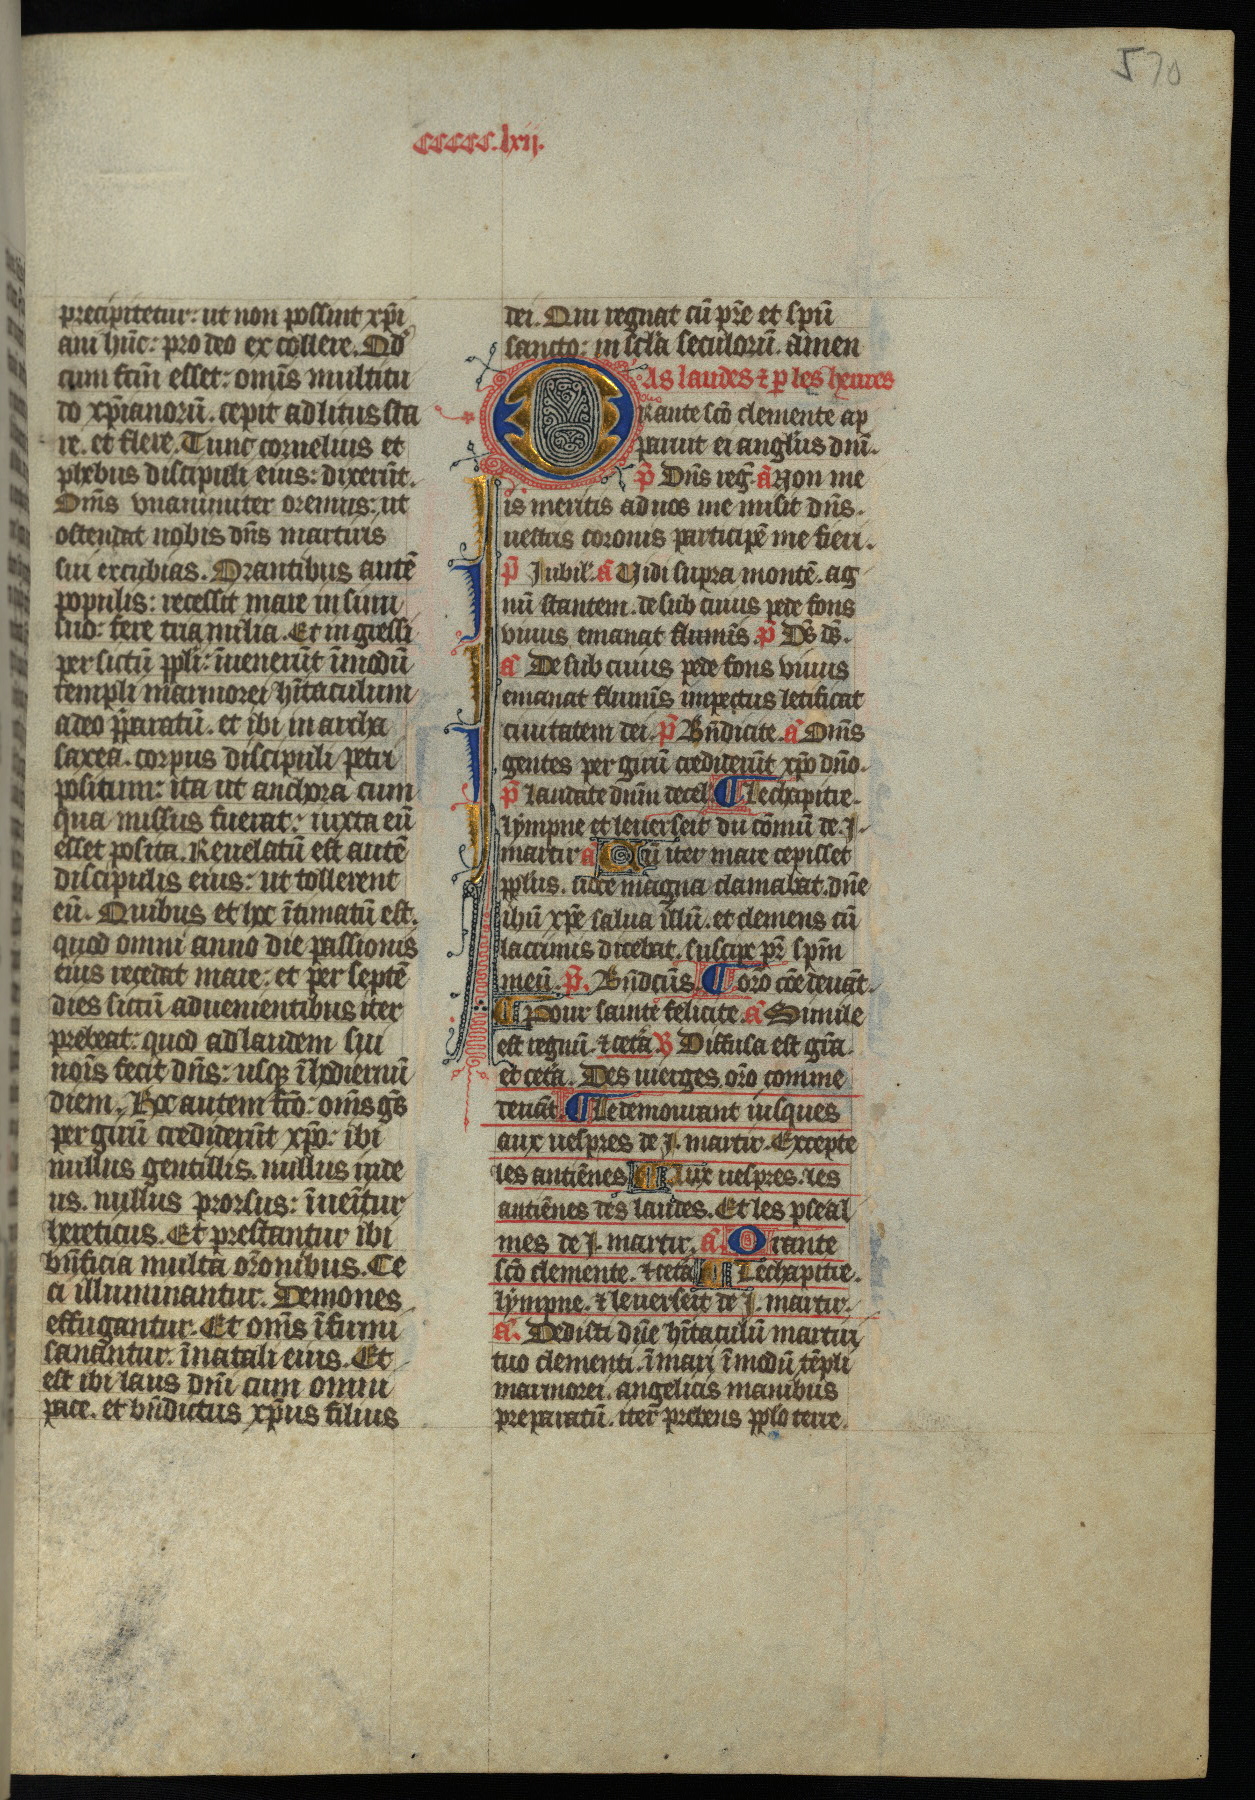 570
CCCCC.lxij.
precipitetur: ut non possint xp̄i
ani hūc: pro deo excollere. Qd̾
cum fcm̄ esset: om̄is multitu
do xp̄ianorū. cepit ad litus sta
re. et flere. Tunc cornelius et
phebus discipuli eius: dixerūt.
Om̄s vnanimiter oremus: ut
ostendat nobis dn̄s martiris
sui excubias. Orantibus autē
populis: recessit mare in sinū
suū: fere tria milia. Et ingressi
per siccū ppl̄i: īuenerūt ī modū
templi marmorei hītaculum
a deo p̄paratū. et ibi in archa
saxea. corpus discipuli petri
positum: ita ut anchora cum
qua missus fuerat: iuxta eū
esset posita. Reuelatū est autē
discipulis eius: ut tollerent
eū. Quibus et hoc ītimatū est.
quod omni anno die passionis
eius recedat mare: et per septē
dies siccū aduenientibus iter
prebeat: quod ad laudem sui
nōis fecit dn̄s: usq; ī hodiernū
diem. Hoc autem fc̄o: om̄s gēs
per girū crediderūt xp̄o: ibi
nullus gentilis. nullus iude
us. nullus prorsus: īuenītur
hereticus. Et prestantur ibi
bn̄ficia multa orōnibus. Ce
ci illuminantur. Demones
effugantur. Et om̄s īfirmi
sanantur. ī natali eius. Et
est ibi laus dn̄i cum omni
pace. et bn̄dictus xp̄us filius
dei. Qui regnat cū pr̄e et spū
sancto: in sc̄la seculorū. amen
As laudes ⁊ p̱ les heures
Orante sc̄o clemente ap
paruit ei angl̄us dn̄i.
p̄ Dn̄s reg̃. ā Non me
is meritis ad uos me misit dn̄s.
uestris coronis participē me fieri.
p̄ Jubil̄. ā Vidi supra montē. ag
nū stantem. de sub cuius pede fons
viuus emanat fluminīs. p̄ Ds̄ ds̄.
ā De sub cuius pede fons viuus
emanat fluminīs impetus letificat
ciuitatem dei. p̄ Bn̄dicite. ā Om̄s
gentes per girū crediderūt xp̄o dn̄o.
p̄ laudate dn̄m de cel̄. ¶ Le chapitre.
lympne et leuerseit du cōmū de .J.
martir ā Cū iter mare cepisset
ppl̄us. uoce magna clamabat. dn̄e
ihū xp̄e salua illū. et clemens cū
lacrimis dicebat. suscipe pr̄ spm̄
meū. p̄. Bn̄dcūs. ¶ orō cōe deuāt.
¶ Pour sainte felicite. ā Simile
est regnū. ⁊ cetā. ℟ Diffusa est grā
et cetā. Des uierges. orō comme
deuāt. ¶ Le demourant iusques
aux uespres de .J. martir. Excepte
les antiēnes. ¶ Aux uespres. les
antiēnes des laudes. Et les pseal
mes de .J. martir. ā. Orante
sc̄o clemente. ⁊ cetā ¶ Le chapitre.
lympne. ⁊ leuerseit de .J. martir.
ā. Dedisti dn̄e hītaculū martiri
tuo clementi. ī mari ī modū tēpli
marmorei. angelicis manibus
preparatū. iter prebens pplo terre.